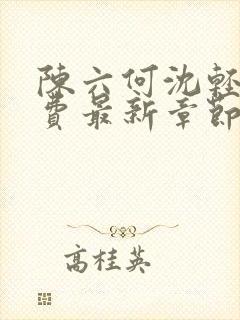 陳六何沈輕
費最新章節
高桂英